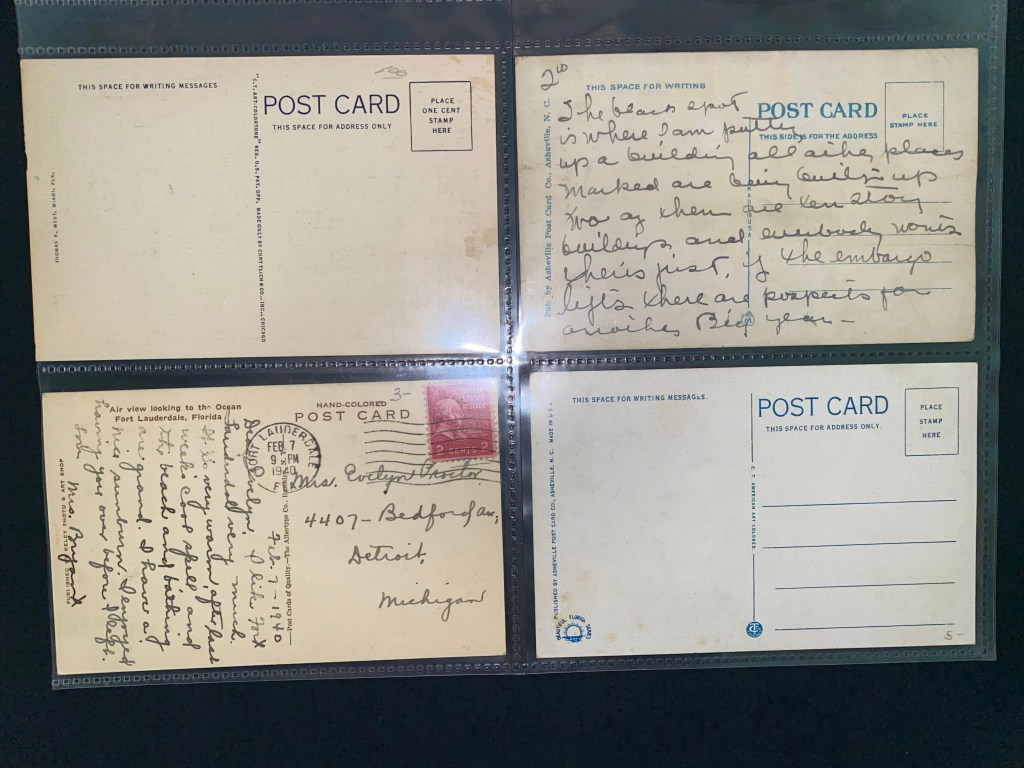 THIS SPACE FOR WRITING MESSAGES
"C.T. ART-COLORTONE" REG. U.S. PAT. OFF. MADE ONLY BY CURT TEICH & CO., INC., CHICAGO
POST CARD
THIS SPACE FOR ADDRESS ONLY
PLACE
ONE CENT
STAMP
HERE
THOMAS P. WEST, MIAMI, FLA.
2 00
THIS SPACE FOR WRITING
POST CARD
THIS SIDE IS FOR THE ADDRESS
PLACE
STAMP HERE
Pub. by Asheville Post Card Co., Asheville, N. C.
The black spot
is where I am putting
up a building all other places
marked are being built up
two of them are ten story
buildings and everybody works
there is just, if the embargo
lifts there are prospects for
another Big year —
Air view looking to the Ocean
Fort Lauderdale, Florida
HAND-COLORED
POST CARD
3-
2 CENTS 2
LAUDERDALE
FEB 7
9 PM
1940
PHOTO & ART SHOP
Post Cards of Quality. — The Albertype Co.,
Feb. 7 — 1940
Dear Evelyn. I like Fort
Lauderdale very much.
It is very warm, after last
week's cool spell and
the beach and bathing
are grand. I have a
nice sunburn. I enjoyed
having you over before I left.
Mrs. Bryant
Mrs. Evelyn Proctor
4407 - Bedford Ave.,
Detroit,
Michigan
THIS SPACE FOR WRITING MESSAGES.
POST CARD
THIS SPACE FOR ADDRESS ONLY.
PLACE
STAMP
HERE
PUBLISHED BY ASHEVILLE POST CARD CO., ASHEVILLE, N. C. MADE IN U.S.A.
C. T. AMERICAN ART COLORED
BEAUTIFUL FLORIDA SERIES
5-